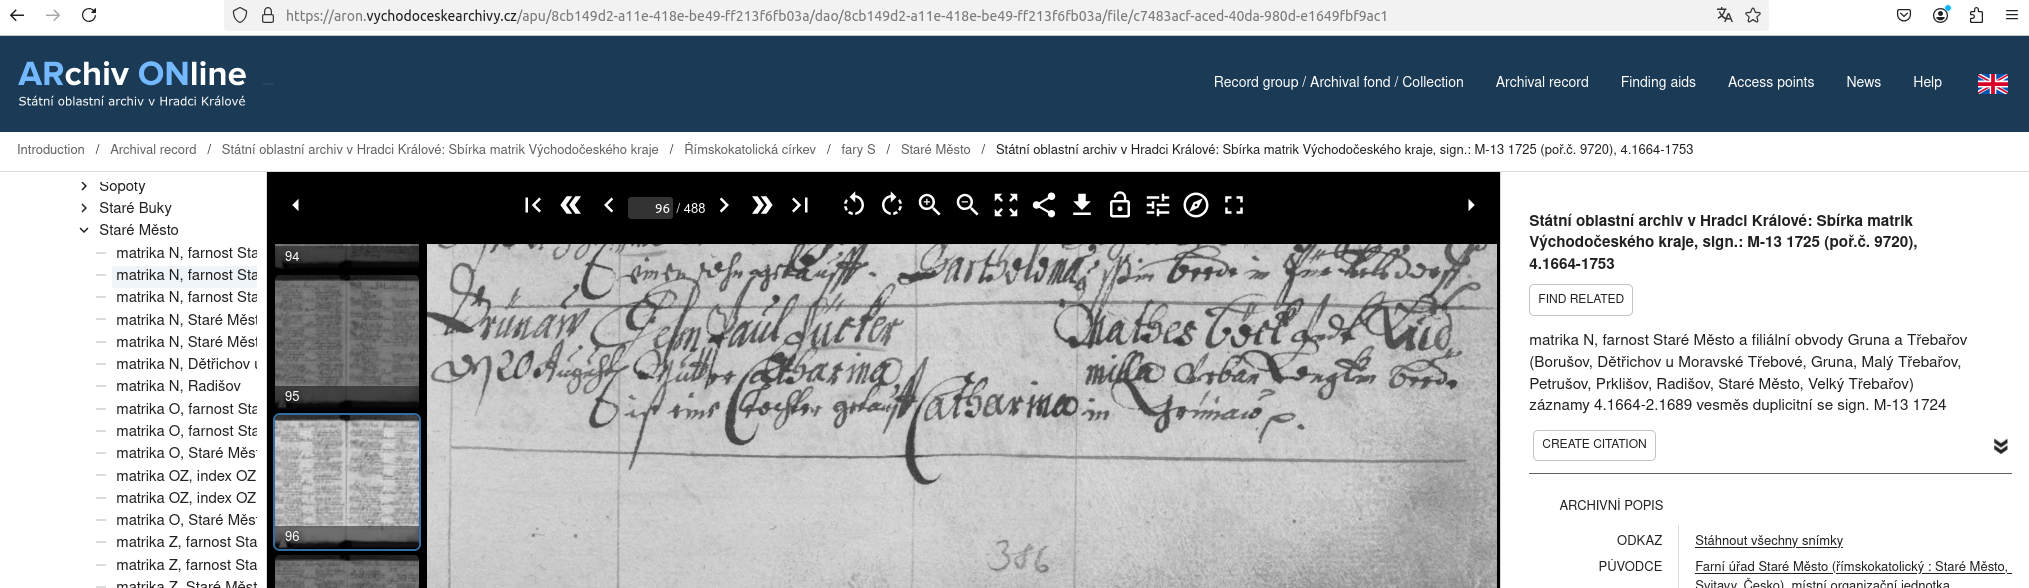 https://aron.vychodoceskearchivy.cz/apu/8cb149d2-a11e-418e-be49-ff213f6fb03a/dao/8cb149d2-a11e-418e-be49-ff213f6fb03a/file/c7483acf-aced-40da-980d-e1649fbf9ac1
ARchiv ONline
Státní oblastní archiv v Hradci Králové
Record group / Archival fond / Collection
Archival record
Finding aids
Access points
News
Help
Introduction / Archival record / Státní oblastní archiv v Hradci Králové: Sbírka matrik Východočeského kraje / Římskokatolická církev / fary S / Staré Město / Státní oblastní archiv v Hradci Králové: Sbírka matrik Východočeského kraje, sign.: M-13 1725 (poř.č. 9720), 4.1664-1753
Sopoty
Staré Buky
Staré Město
matrika N, farnost Sta
matrika N, farnost Sta
matrika N, farnost Sta
matrika N, Staré Měst
matrika N, Staré Měst
matrika N, Dětřichov u
matrika N, Radišov
matrika O, farnost Sta
matrika O, farnost Sta
matrika O, Staré Měst
matrika OZ, index OZ
matrika OZ, index OZ
matrika O, Staré Měst
matrika Z, farnost Sta
matrika Z, farnost Sta
matrika Z, Staré Měst
96 / 488
94
95
96
einen sohn getaufft. Bartholoma
Grünaw Paul Mathes
20 Augusti Mutter Catharina milla Urban
ist eine Tochter getaufft Catharina in Grünaw
386
Státní oblastní archiv v Hradci Králové: Sbírka matrik
Východočeského kraje, sign.: M-13 1725 (poř.č. 9720),
4.1664-1753
FIND RELATED
matrika N, farnost Staré Město a filiální obvody Gruna a Třebařov
(Borušov, Dětřichov u Moravské Třebové, Gruna, Malý Třebařov,
Petrušov, Prklišov, Radišov, Staré Město, Velký Třebařov)
záznamy 4.1664-2.1689 vesměs duplicitní se sign. M-13 1724
CREATE CITATION
ARCHIVNÍ POPIS
ODKAZ
Stáhnout všechny snímky
PŮVODCE
Farní úřad Staré Město (římskokatolický : Staré Město,
Svitavy, Česko), místní organizační jednotka